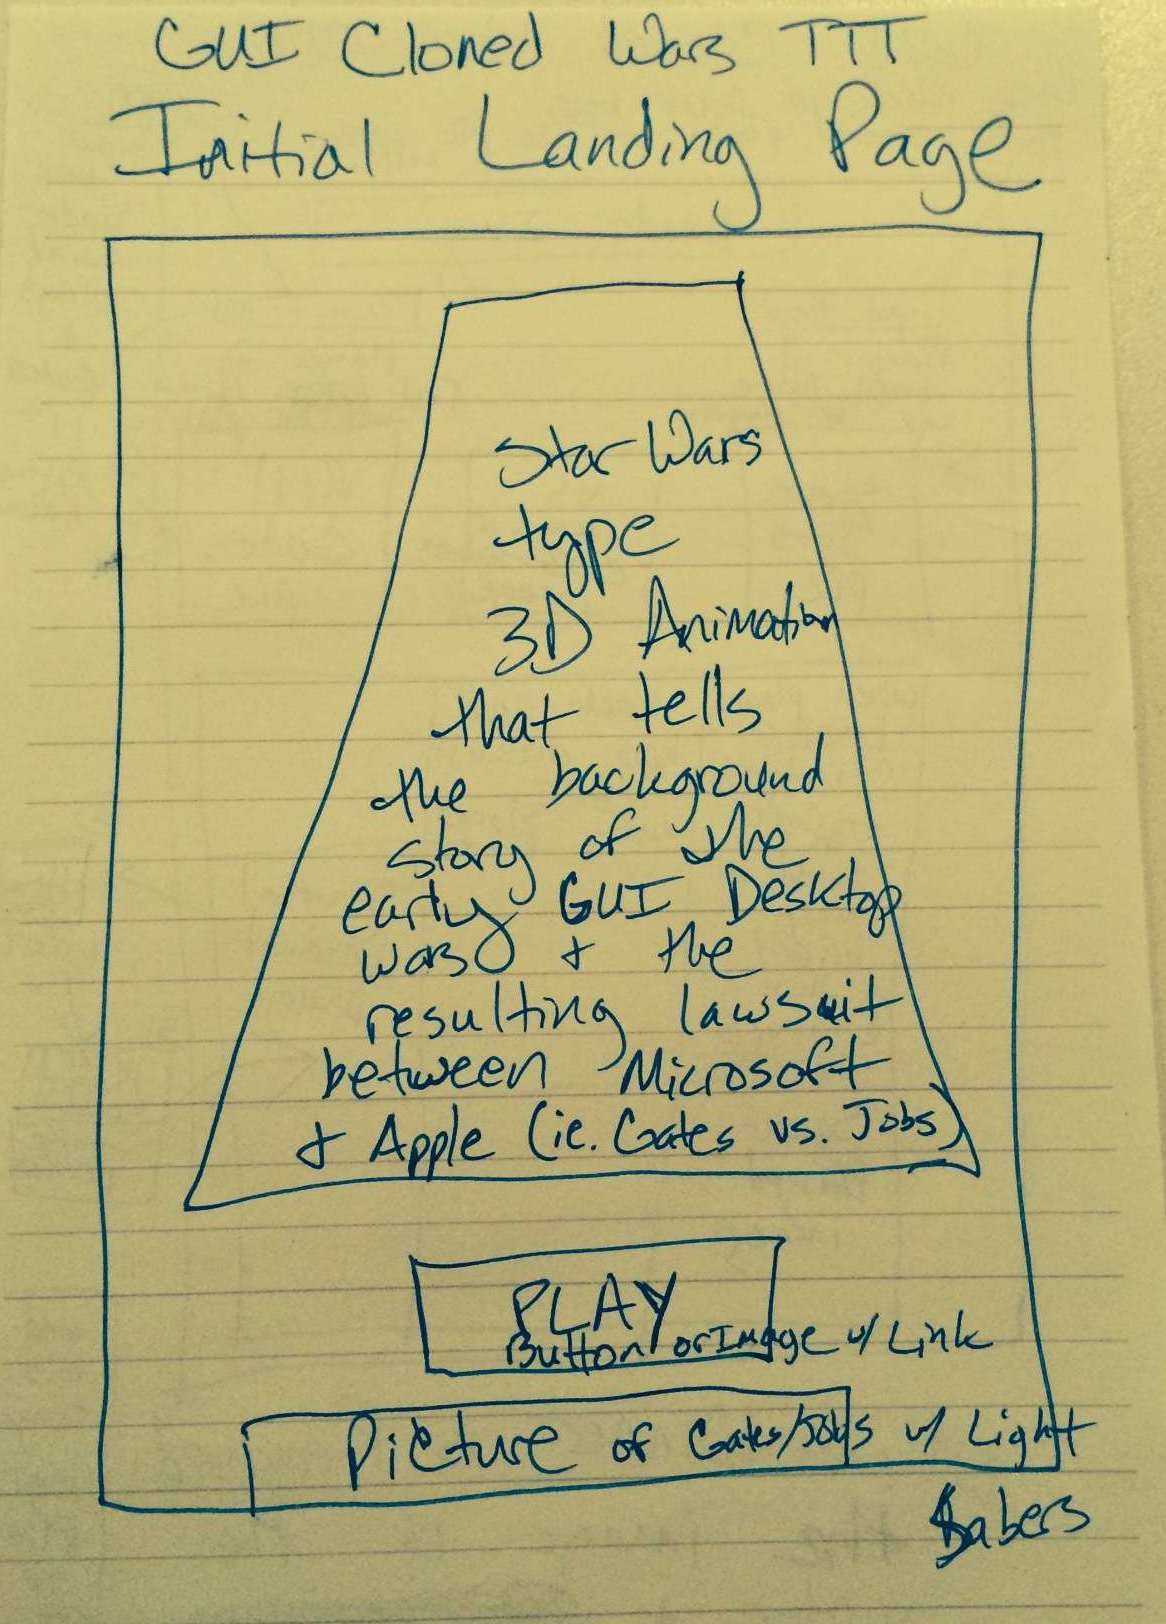 GUI Cloned Wars TTT
Initial Landing Page
Star Wars
type
3D Animation
that tells
the background
story of the
early GUI Desktop
wars + the
resulting lawsuit
between Microsoft
+ Apple (ie. Gates vs. Jobs)
PLAY
Button or Image w/ Link
Picture of Gates/Jobs w/ Light
Sabers